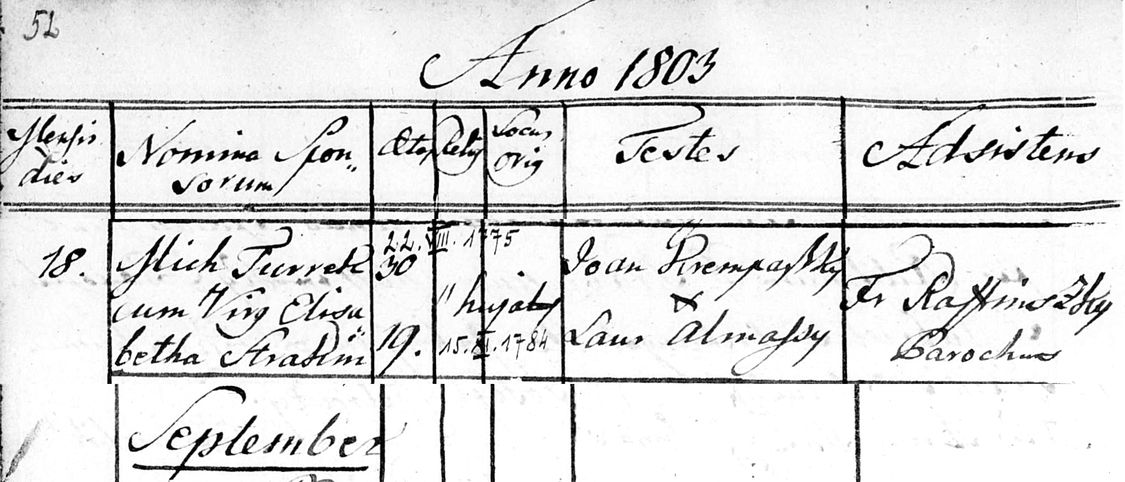 52
Anno 1803
Mensis
dies
Nomina Spon„
sorum
Ætas
Relig
Locus
Orig
Testes
Adsistens
18.
Mich Turrek
cum Virg Elisa„
betha
22.VIII.1775
30
" hujates
19.
15.XI.1784
Joan Krempaßky
x
Laur Almaßy
Fr
Parochus
September